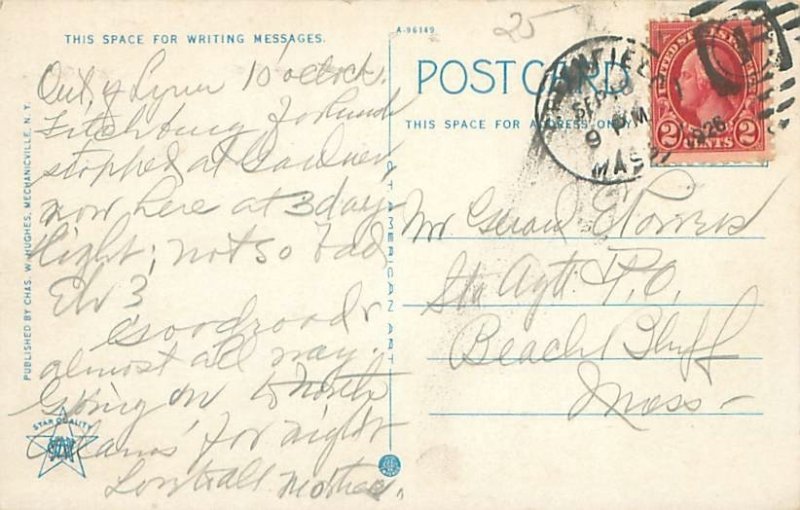 A-96149
25
THIS SPACE FOR WRITING MESSAGES.
POST CARD
THIS SPACE FOR ADDRESS ONLY
PUBLISHED BY CHAS. W. HUGHES, MECHANICVILLE, N. Y.
AMERICAN ART
STAR QUALITY
UNITED STATES POSTAGE
2 CENTS 2
SEP
9 PM
MASS.
1926
Out of Lynn 10 oclock.
Fitchburg for lunch
stopped at Gardner
now here at 3 day
light; not so bad
Eh?
Good roads
almost all way.
Going on to North
Adams for night
Love to all Mother
Mr Norris
Sta Agt. P.O.
Beach Bluff
Mass